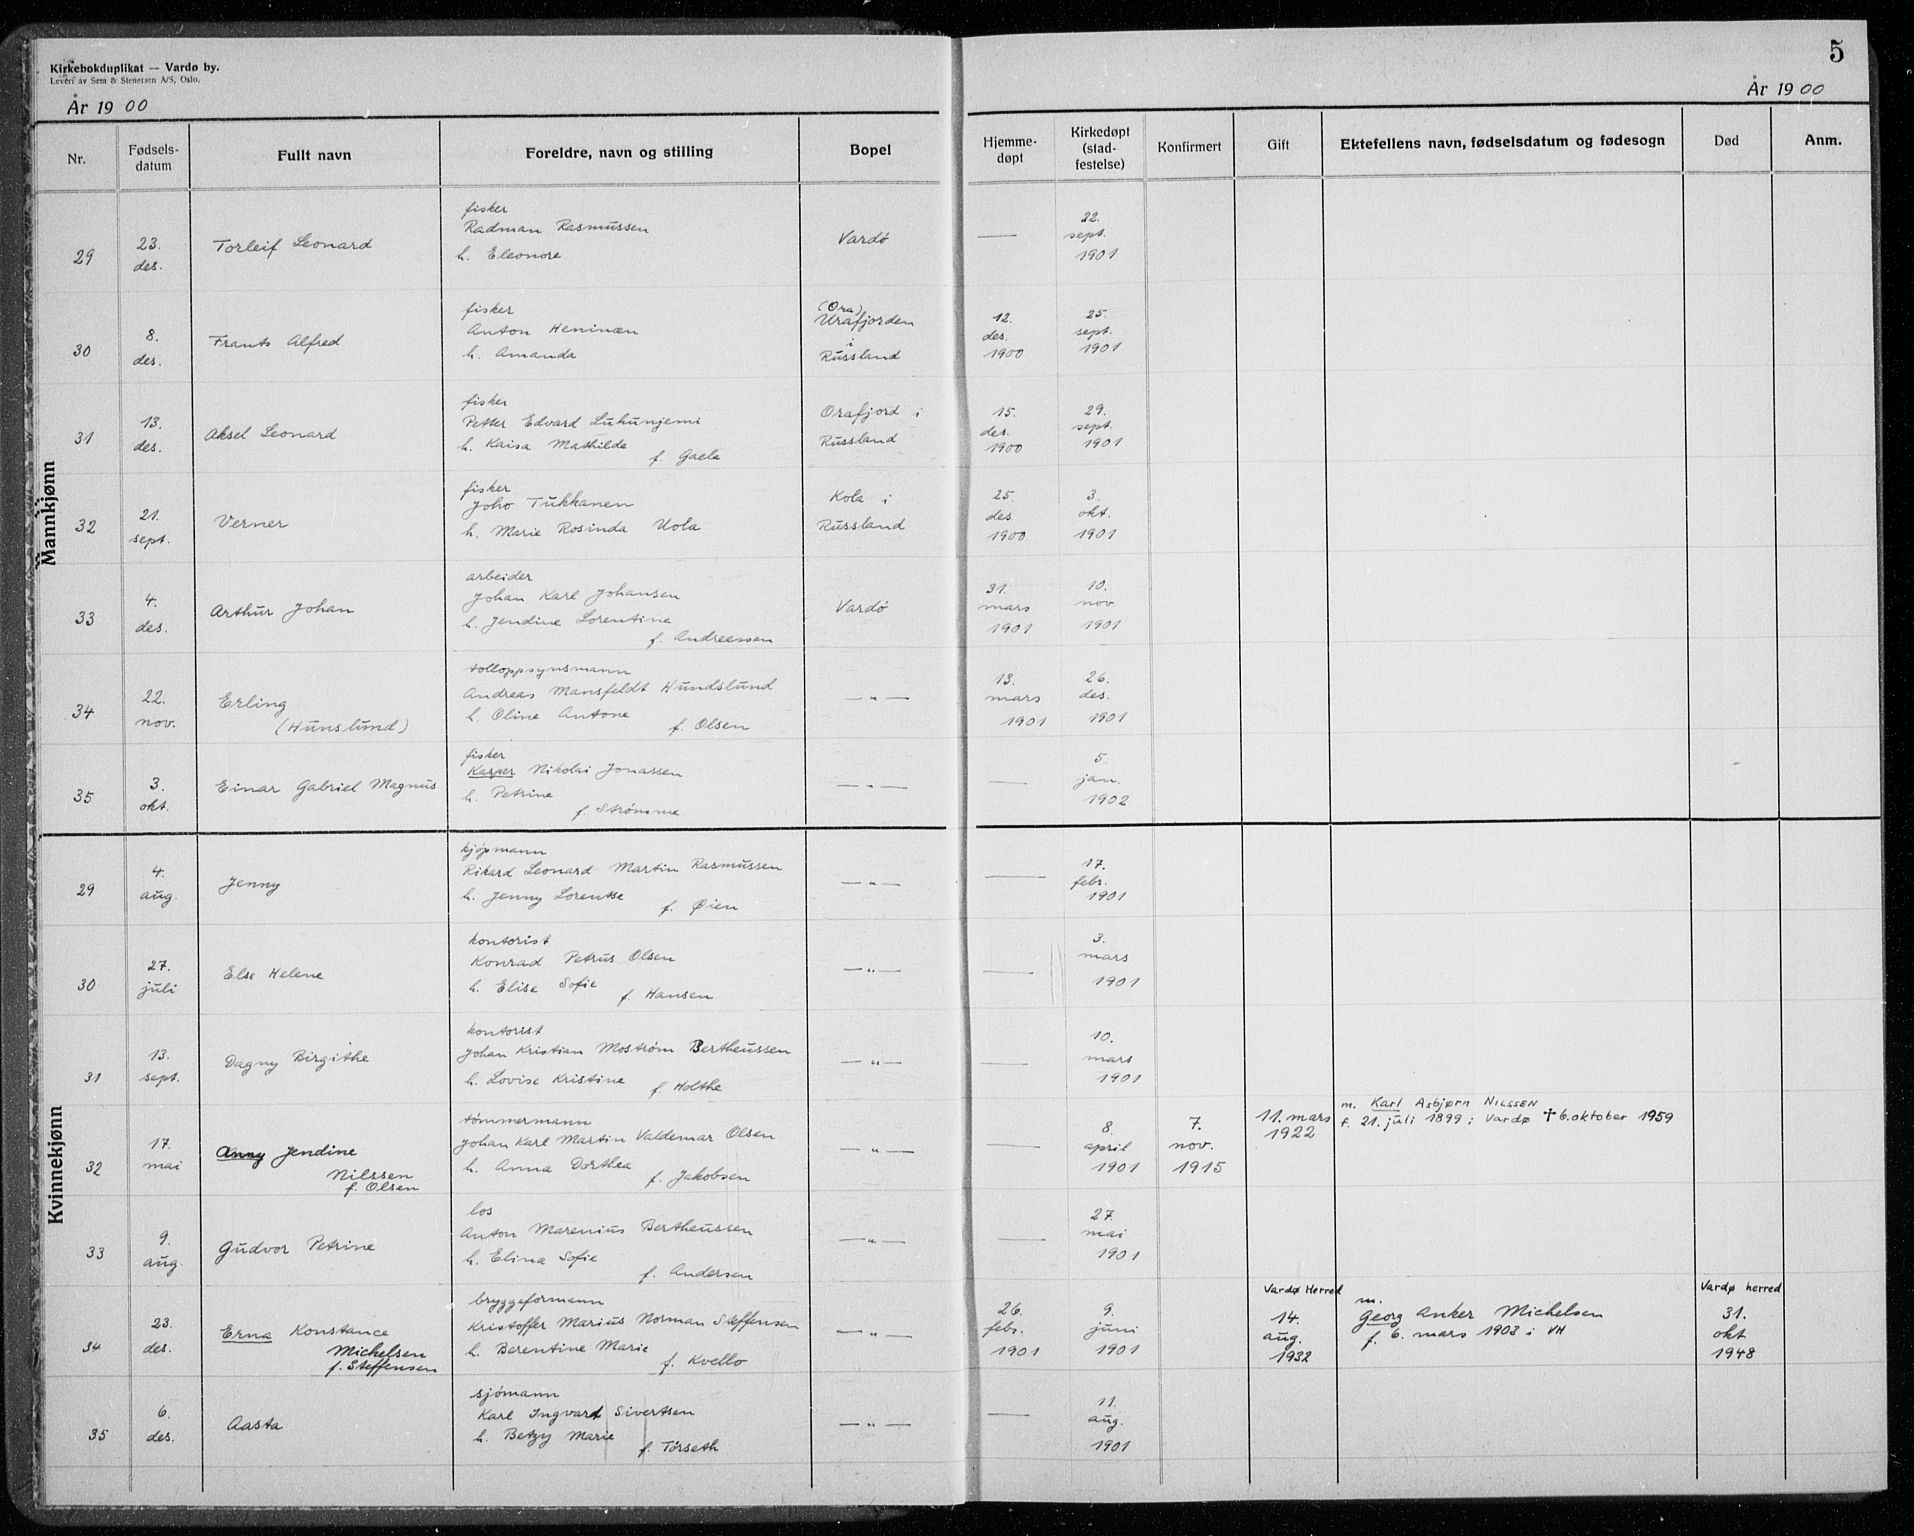 Kirkebokduplikat — Vardø by.
Levert av Sem & Stenersen A/S, Oslo.
5
År 1900
År 1900
Nr. Fødselsdatum Fullt navn Foreldre, navn og stilling Bopel Hjemmedøpt Kirkedøpt (stadfestelse) Konfirmert Gift Ektefellens navn, fødselsdatum og fødesogn Død Anm.
Mannkjønn
29 23. des. Torleif Leonard
fisker
Radman Rasmussen
h. Eleonore
Vardö — 22. sept. 1901
30 8. des. Frants Alfred
fisker
Anton Heninæn
h. Amanda
(Ora)
Urafjorden
i
Russland
12. des. 1900 25. sept. 1901
31 13. des. Aksel Leonard
fisker
Petter Edvard Luhunjemi
h. Kaisa Mathilde
f. Gaela
Orafjord i
Russland
15. des. 1900 29. sept. 1901
32 21. sept. Verner
fisker
Joho Tukkanen
h. Marie Rosinda Uola
Kola i
Russland
25. des. 1900 3. okt. 1901
33 4. des. Arthur Johan
arbeider
Johan Karl Johansen
h. Jendine Lorentine
f. Andreassen
Vardö 31. mars 1901 10. nov 1901
34 22. nov. Erling
(Hunslund)
tolloppsynsmann
Andreas Mansfeldt Hundslund
h. Oline Antone
f. Olsen
— " — 13. mars 1901 26. des. 1901
35 3. okt. Einar Gabriel Magnus
fisker
Kasper Nikolai Jonassen
h. Petrine
f. Strömme
— " — — 5. jan. 1902
Kvinnekjønn
29 4. aug. Jenny
kjøpmann
Rikard Leonard Martin Rasmussen
h. Jenny Lorentse
f. Øien
— " — — 17. febr. 1901
30 27. juli Else Helene
kontorist
Konrad Petrus Olsen
h. Elise Sofie
f. Hansen
— " — — 3. mars 1901
31 13. sept. Dagny Birgithe
kontorist
Johan Kristian Moström Bertheussen
h. Lovise Kristine
f. Holthe
— " — — 10. mars 1901
32 17. mai Anny Jendine
Nilssen
f. Olsen
tömmermann
Johan Karl Martin Valdemar Olsen
h. Anna Dorthea
f. Jakobsen
— " — — 8. april 1901 7. nov. 1915 11. mars 1922
m. Karl Asbjørn NILSSEN
f. 21. juli 1899 i Vardø † 6. oktober 1959
33 9. aug. Gudvor Petrine
los
Anton Marenius Bertheussen
h. Elina Sofie
f. Andersen
— " — — 27. mai 1901
34 23. des. Erna Konstance
Michelsen
f. Steffensen
bryggeformann
Kristoffer Marius Norman Steffensen
h. Berentine Marie
f. Kvello
— " — 26. febr. 1901 9. juni 1901
Vardø Herred
14. aug. 1932
m.
Georg Anker Michelsen
f. 6. mars 1903 i VH
Vardø herred
31. okt 1948
35 6. des. Aasta
sjömann
Karl Ingvart Sivertsen
h. Betzy Marie
f. Törseth
— " — — 11. aug. 1901